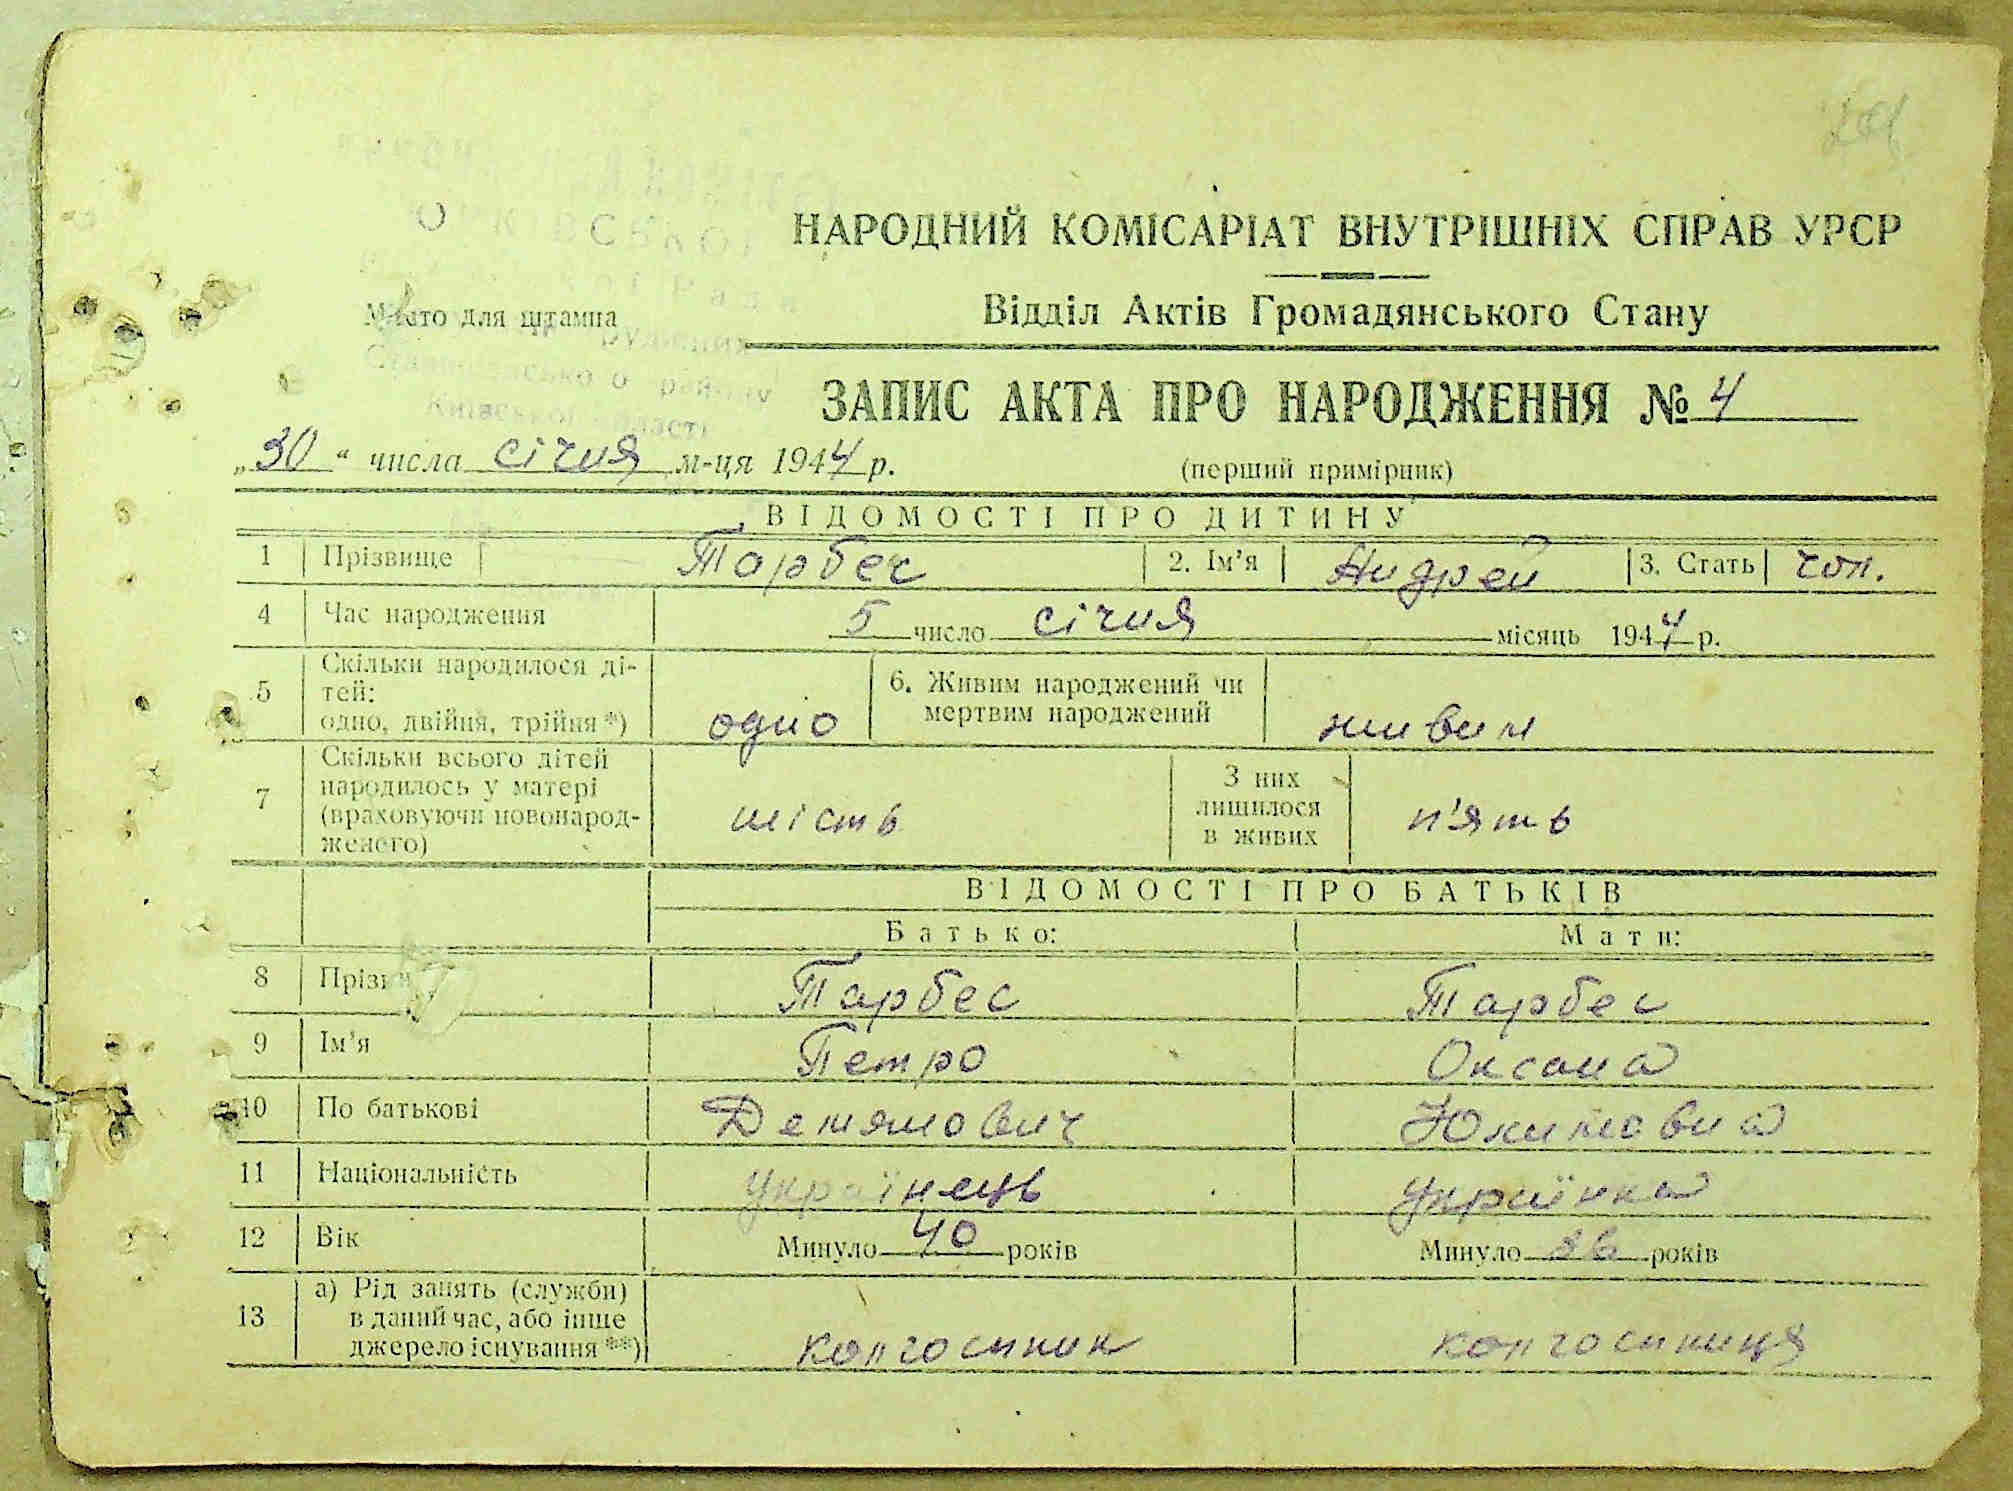 НАРОДНИЙ КОМІСАРІАТ ВНУТРІШНІХ СПРАВ УРСР
Місто для штампа
Відділ Актів Громадянського Стану
району
Київської області
ЗАПИС АКТА ПРО НАРОДЖЕННЯ № 4
„30“ числа січня м-ця 1944 р.
(перший примірник)
ВІДОМОСТІ ПРО ДИТИНУ
1 Прізвище Тарбес 2. Ім'я Андрей 3. Стать чол.
4 Час народження 5 число січня місяць 1944 р.
5 Скільки народилося ді-
тей:
одно, двійня, трійня *) одно
6. Живим народжений чи
мертвим народжений живим
7 Скільки всього дітей
народилось у матері
(враховуючи новонарод-
женого) шість
З них
лишилося
в живих п'ять
ВІДОМОСТІ ПРО БАТЬКІВ
Батько: Мати:
8 Тарбес Тарбес
9 Ім'я Петро Оксана
10 По батькові Демянович
11 Національність українець українка
12 Вік Минуло 40 років Минуло 36 років
13 а) Рід занять (служби)
в даний час, або інше
джерело існування **) колгоспник колгоспниця